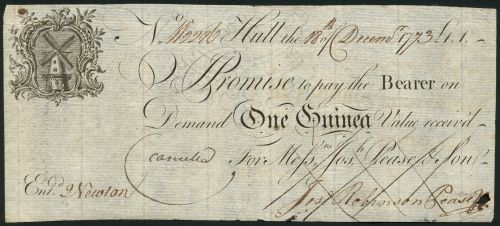 No. Hull the 18th of Decemr. 1773 £1.1.-
I Promise to pay the Bearer on
Demand One Guinea Value receiv'd
cancelled For Messrs. Josh. Pease & Son
Entd. Newton Jos. Robinson Pease